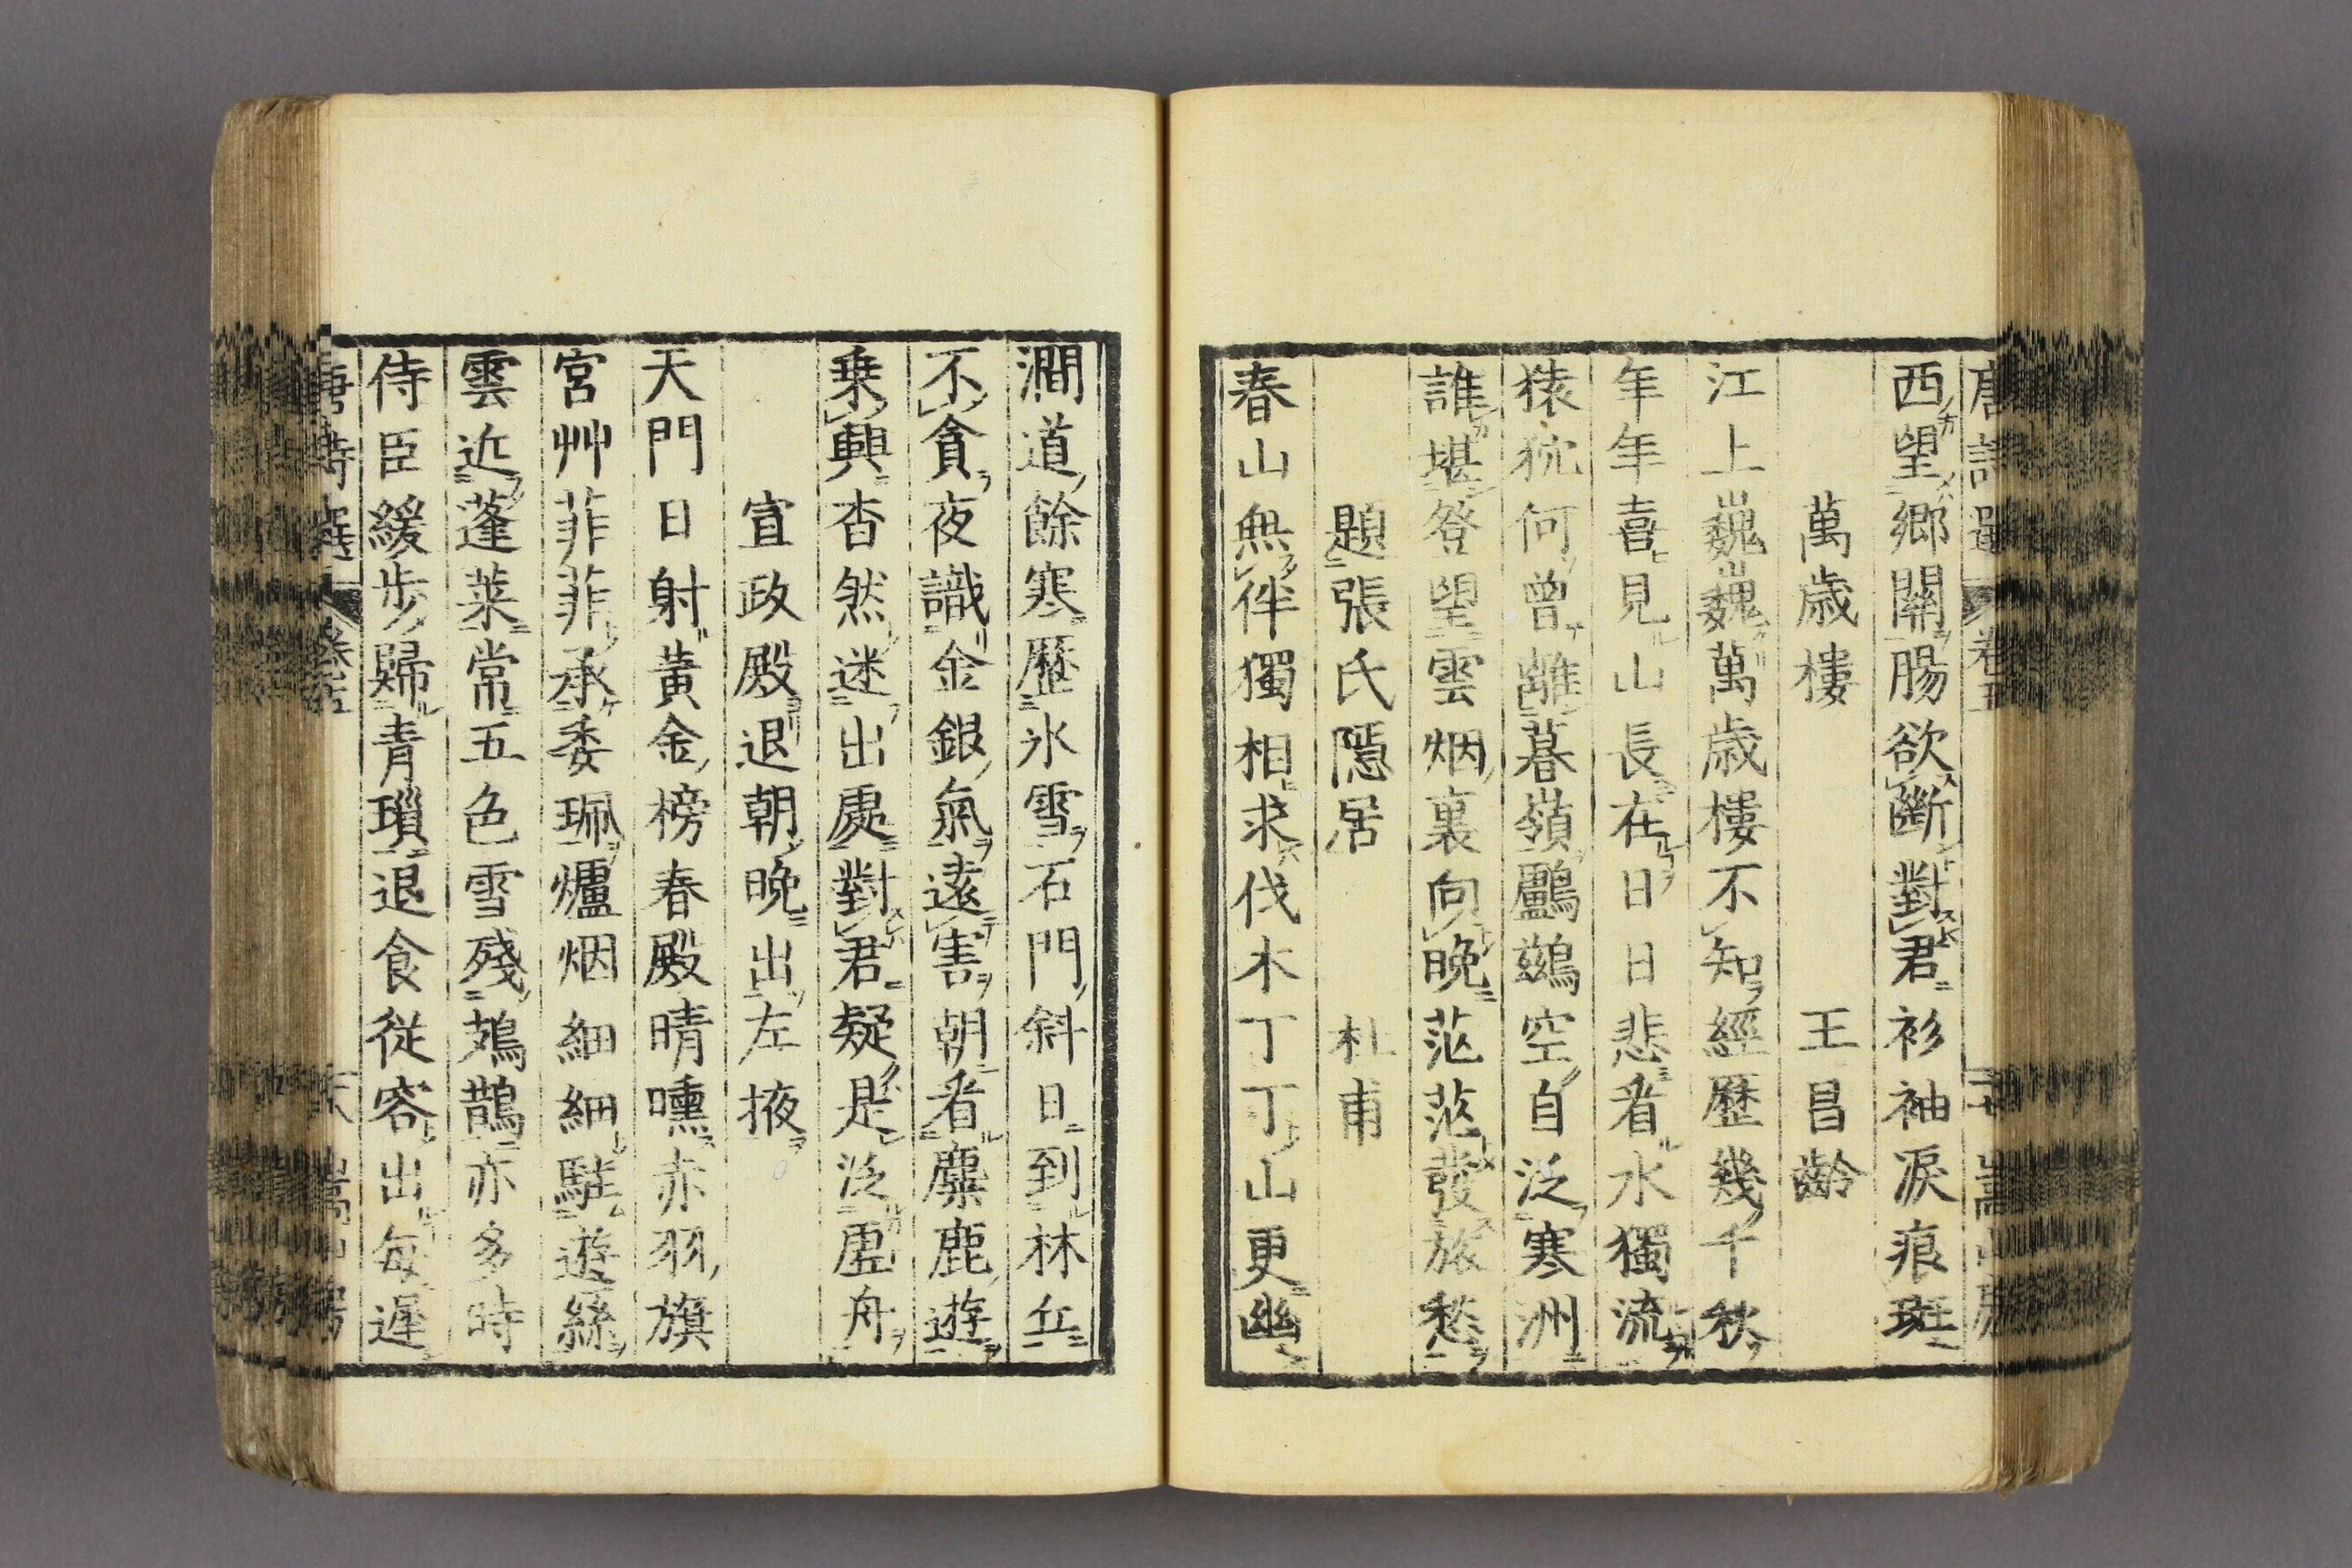 西望郷關腸欲斷對君衫袖淚痕斑
萬歳樓 王昌齡
江上巍巍萬歳樓不知經歷幾千秋
年年喜見山長在日日悲看水獨流
猿狖何曾離暮嶺鸕鷀空自泛寒洲
誰堪登望雲烟裏向晚茫茫發旅愁
題張氏隱居 杜甫
春山無伴獨相求伐木丁丁山更幽
澗道餘寒歷氷雪石門斜日到林丘
不貪夜識金銀氣遠害朝看麋鹿遊
乗興杳然迷出處對君疑是泛虛舟
宣政殿退朝晩出左掖
天門日射黃金榜春殿晴曛赤羽旗
宮艸菲菲承委珮爐烟細細駐遊絲
雲近蓬萊常五色雪殘鳷鵲亦多時
侍臣緩步歸青瑣退食從容出每遲